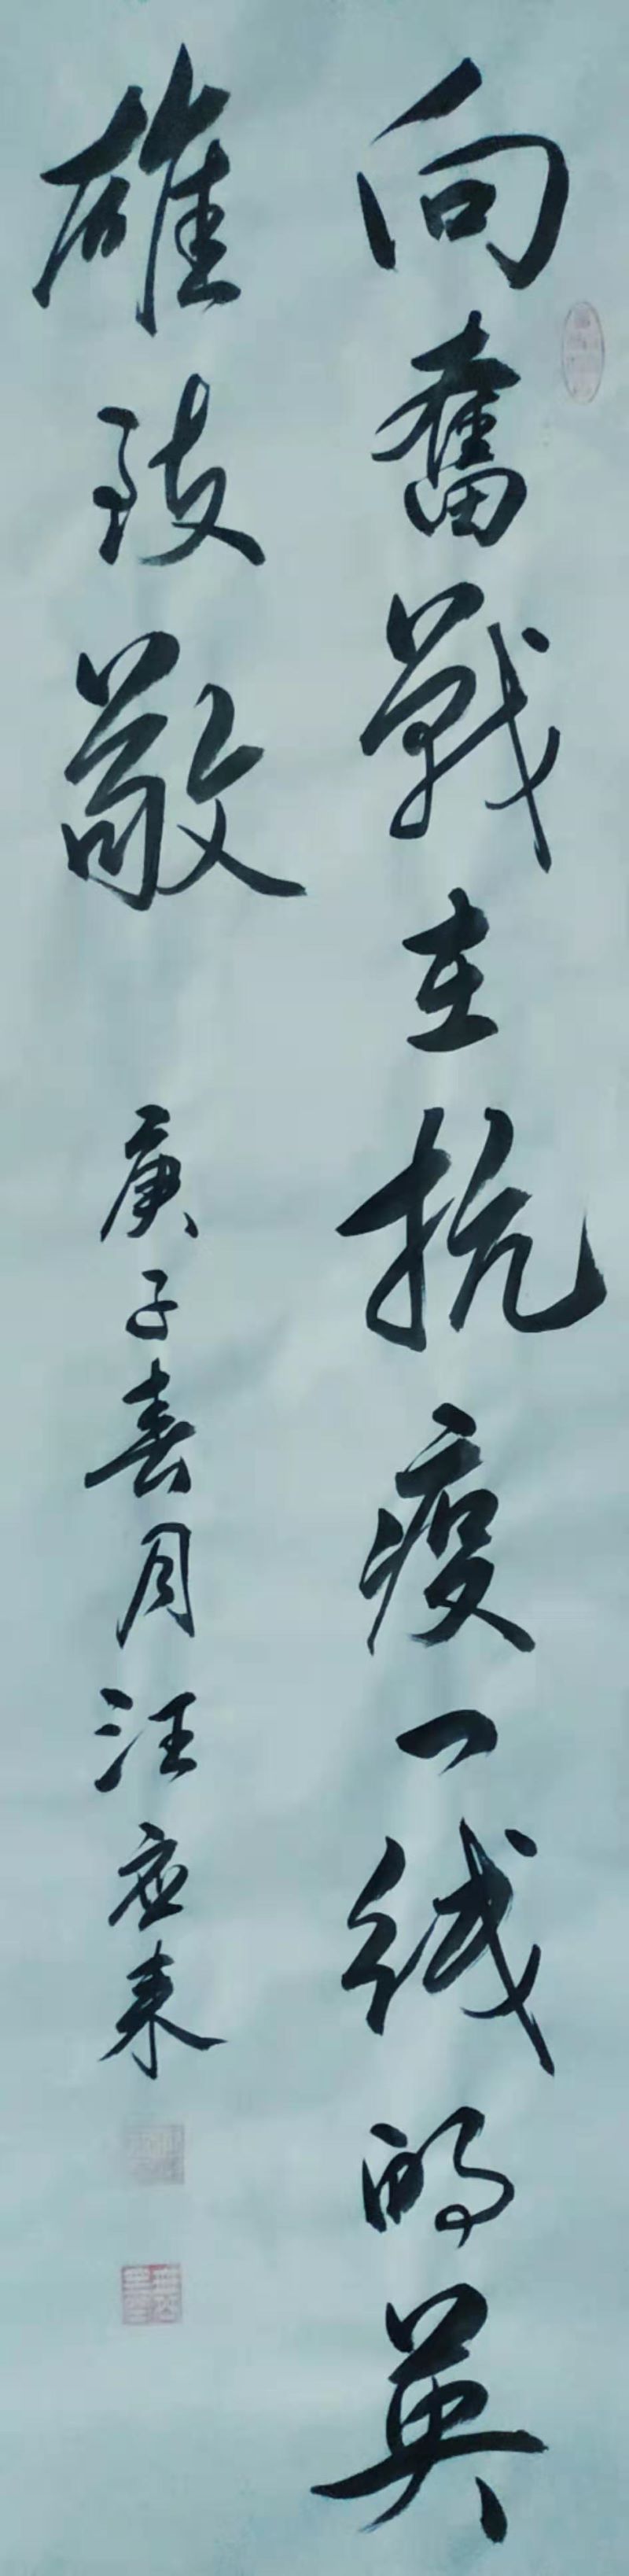 向奮戰在抗疫一线的英
雄致敬
庚子春月汪应来